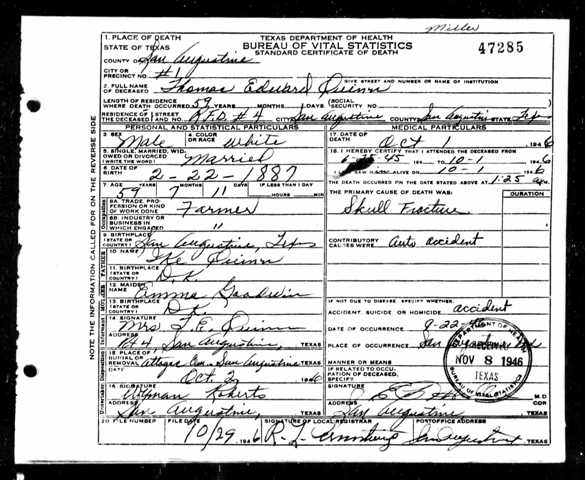 Miller
TEXAS DEPARTMENT OF HEALTH
BUREAU OF VITAL STATISTICS
STANDARD CERTIFICATE OF DEATH
47285
1. PLACE OF DEATH
STATE OF TEXAS
COUNTY OF San Augustine
CITY OR PRECINCT NO. #1
GIVE STREET AND NUMBER OR NAME OF INSTITUTION
2. FULL NAME OF DECEASED Thomas Edward Quinn
LENGTH OF RESIDENCE WHERE DEATH OCCURRED 59 YEARS MONTHS DAYS (SOCIAL SECURITY NO.
RESIDENCE OF THE DECEASED STREET AND NO. R.F.D. #4 CITY San Augustine COUNTY San Augustine STATE Texas
PERSONAL AND STATISTICAL PARTICULARS
3. SEX Male
4. COLOR OR RACE White
5. SINGLE, MARRIED, WIDOWED OR DIVORCED (WRITE THE WORD) Married
6. DATE OF BIRTH 2-22-1887
7. AGE YEARS MONTHS DAYS IF LESS THAN 1 DAY
59 7 11 HOURS MIN
8A. TRADE, PROFESSION OR KIND OF WORK DONE Farmer
8B. INDUSTRY OR BUSINESS IN WHICH ENGAGED "
9. BIRTHPLACE (STATE OR COUNTRY) San Augustine, Texas
10. NAME Ike Quinn
11. BIRTHPLACE (STATE OR COUNTRY) D.K.
12. MAIDEN NAME Emma Goodwin
13. BIRTHPLACE (STATE OR COUNTRY) D.K.
14. SIGNATURE Mrs. T.E. Quinn
ADDRESS Rt 4 San Augustine, TEXAS
15. PLACE OF BURIAL OR REMOVAL Cem. San Augustine TEXAS
DATE Oct 2, 1946
16. SIGNATURE Wyman Roberts
ADDRESS San Augustine, TEXAS
MEDICAL PARTICULARS
17. DATE OF DEATH Oct 1946
18. I HEREBY CERTIFY THAT I ATTENDED THE DECEASED FROM
45 TO 10-1 1946
I LAST SAW H ALIVE ON 10-1 1946
THE DEATH OCCURRED ON THE DATE STATED ABOVE AT 1:25 M.
THE PRIMARY CAUSE OF DEATH WAS: DURATION
Skull Fracture
CONTRIBUTORY CAUSES WERE Auto accident
IF NOT DUE TO DISEASE, SPECIFY:
ACCIDENT SUICIDE OR HOMICIDE accident
DATE OF OCCURRENCE 9-22-46
PLACE OF OCCURRENCE San Augustine Tex
MANNER OR MEANS
IF RELATED TO OCCUPATION OF DECEASED, SPECIFY
SIGNATURE
M D COR
ADDRESS San Augustine TEXAS
DEPARTMENT OF HEALTH
NOV 8 1946
TEXAS
BUREAU OF VITAL STATISTICS
20. FILE NUMBER FILE DATE SIGNATURE OF LOCAL REGISTRAR POSTOFFICE ADDRESS
10/29 1946 R. L. Armstrong San Augustine TEXAS
NOTE THE INFORMATION CALLED FOR ON THE REVERSE SIDE
FATHER